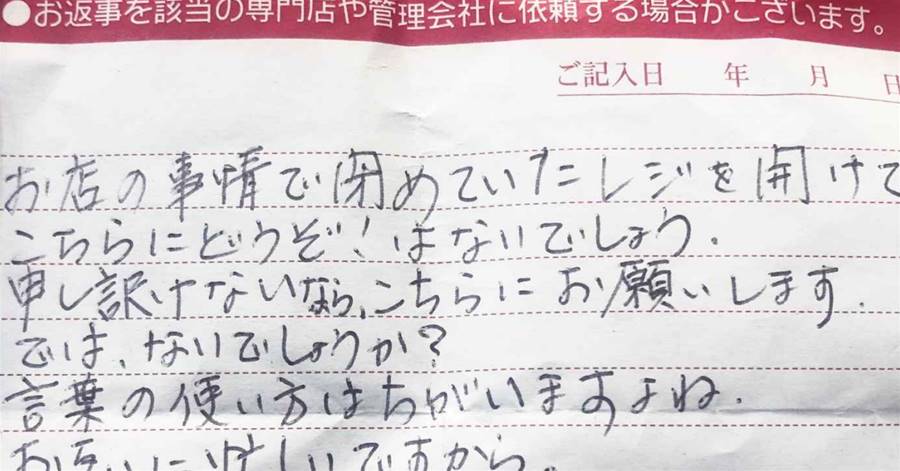 ●お返事を該当の専門店や管理会社に依頼する場合がございます。
ご記入日　年　月　日
お店の事情で閉めていたレジを開けて
こちらにどうぞ!はないでしょう.
申し訳けないなら、こちらにお願いします.
では、ないでしょうか?
言葉の使い方はちがいますよね.
お互いに忙しいですから.